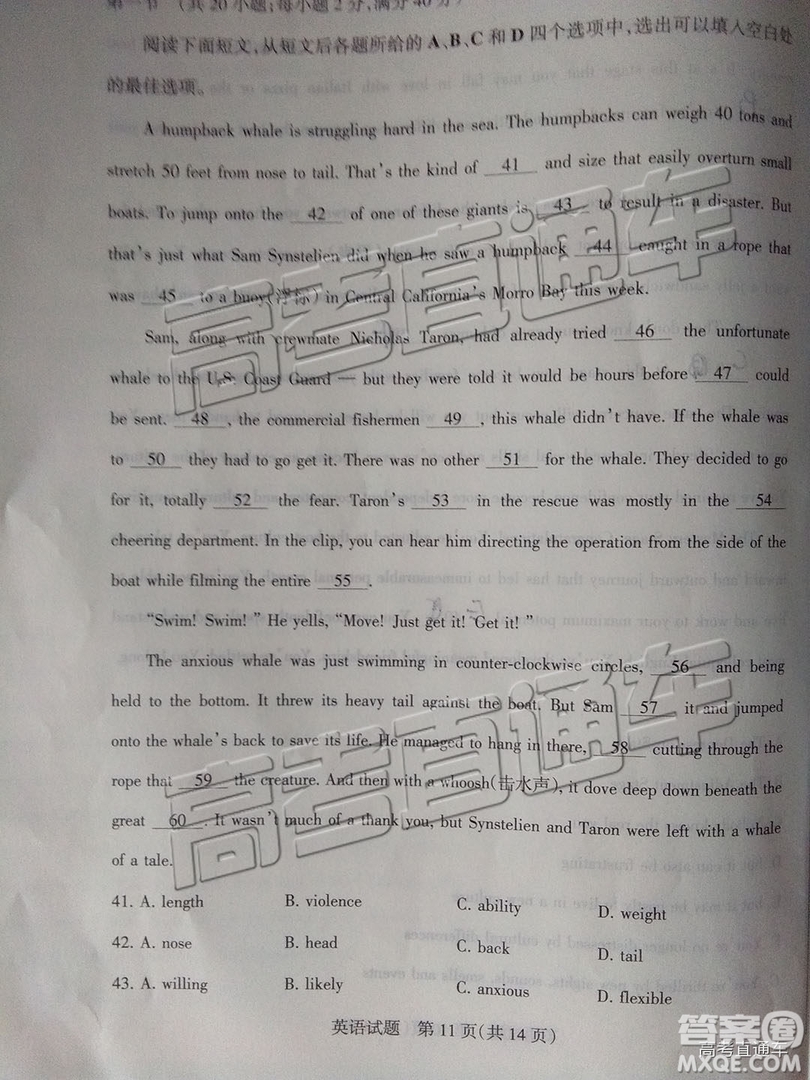 第一节 (共20小题;每小题2分,满分40分)
阅读下面短文,从短文后各题所给的A、B、C和D四个选项中,选出可以填入空白处
的最佳选项。
A humpback whale is struggling hard in the sea. The humpbacks can weigh 40 tons and
stretch 50 feet from nose to tail. That's the kind of 41 and size that easily overturn small
boats. To jump onto the 42 of one of these giants is 43 to result in a disaster. But
that's just what Sam Synstelien did when he saw a humpback 44 caught in a rope that
was 45 to a buoy(浮标) in Central California's Morro Bay this week.
Sam, along with crewmate Nicholas Taron, had already tried 46 the unfortunate
whale to the U.S. Coast Guard — but they were told it would be hours before 47 could
be sent. 48 , the commercial fishermen 49 , this whale didn't have. If the whale was
to 50 they had to go get it. There was no other 51 for the whale. They decided to go
for it, totally 52 the fear. Taron's 53 in the rescue was mostly in the 54
cheering department. In the clip, you can hear him directing the operation from the side of the
boat while filming the entire 55 .
"Swim! Swim! " He yells, "Move! Just get it! Get it! "
The anxious whale was just swimming in counter-clockwise circles, 56 and being
held to the bottom. It threw its heavy tail against the boat. But Sam 57 it and jumped
onto the whale's back to save its life. He managed to hang in there, 58 cutting through the
rope that 59 the creature. And then with a whoosh(击水声), it dove deep down beneath the
great 60 . It wasn't much of a thank you, but Synstelien and Taron were left with a whale
of a tale.
41. A. length B. violence C. ability D. weight
42. A. nose B. head C. back D. tail
43. A. willing B. likely C. anxious D. flexible
英语试题 第11页(共14页)
高考直通车
高考直通车
答案圈
高考直通车
MXQE.COM